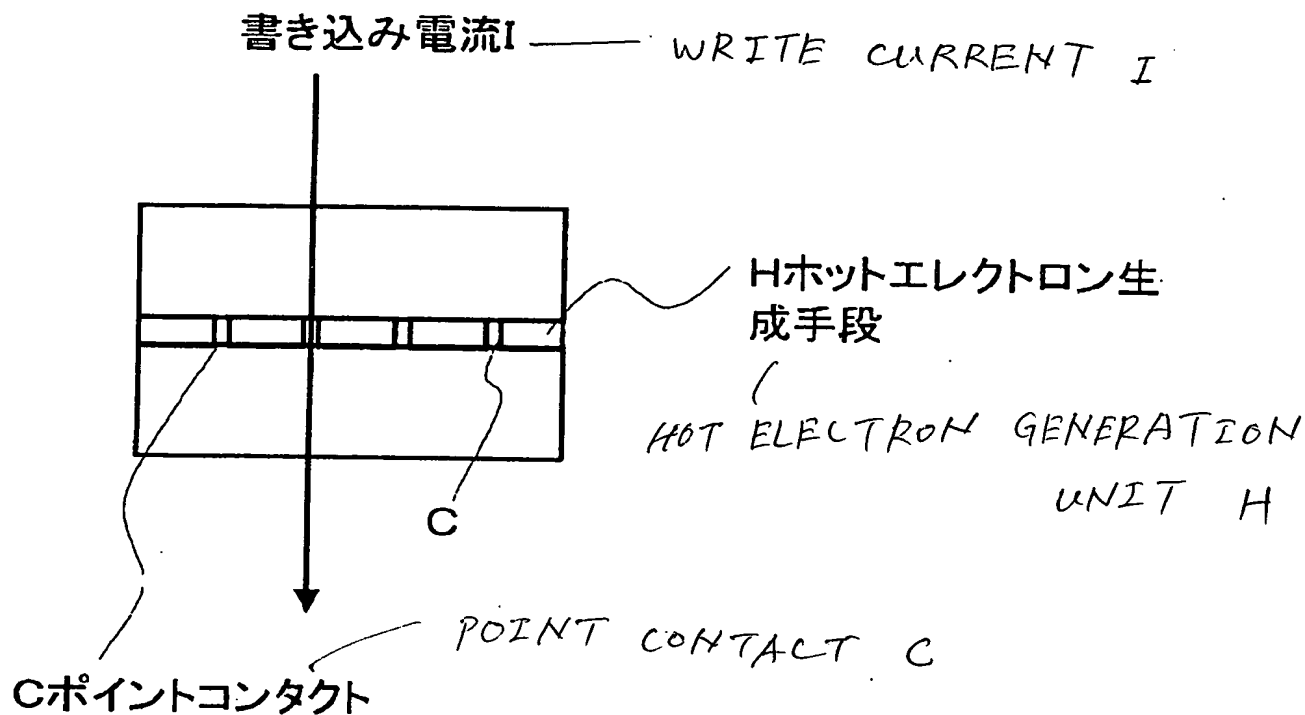 書き込み電流I
WRITE CURRENT I
Hホットエレクトロン生
成手段
HOT ELECTRON GENERATION
UNIT H
C
POINT CONTACT C
Cポイントコンタクト